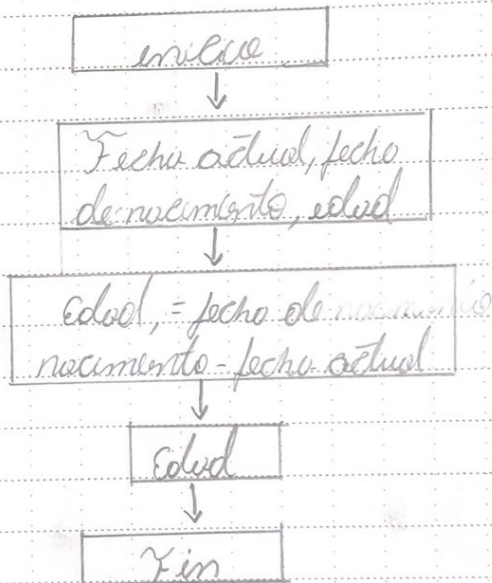 inicio
Fecha actual, fecha
de nacimiento, edad
Edad, = fecha de nacimiento
nacimiento - fecha actual
Edad
Fin